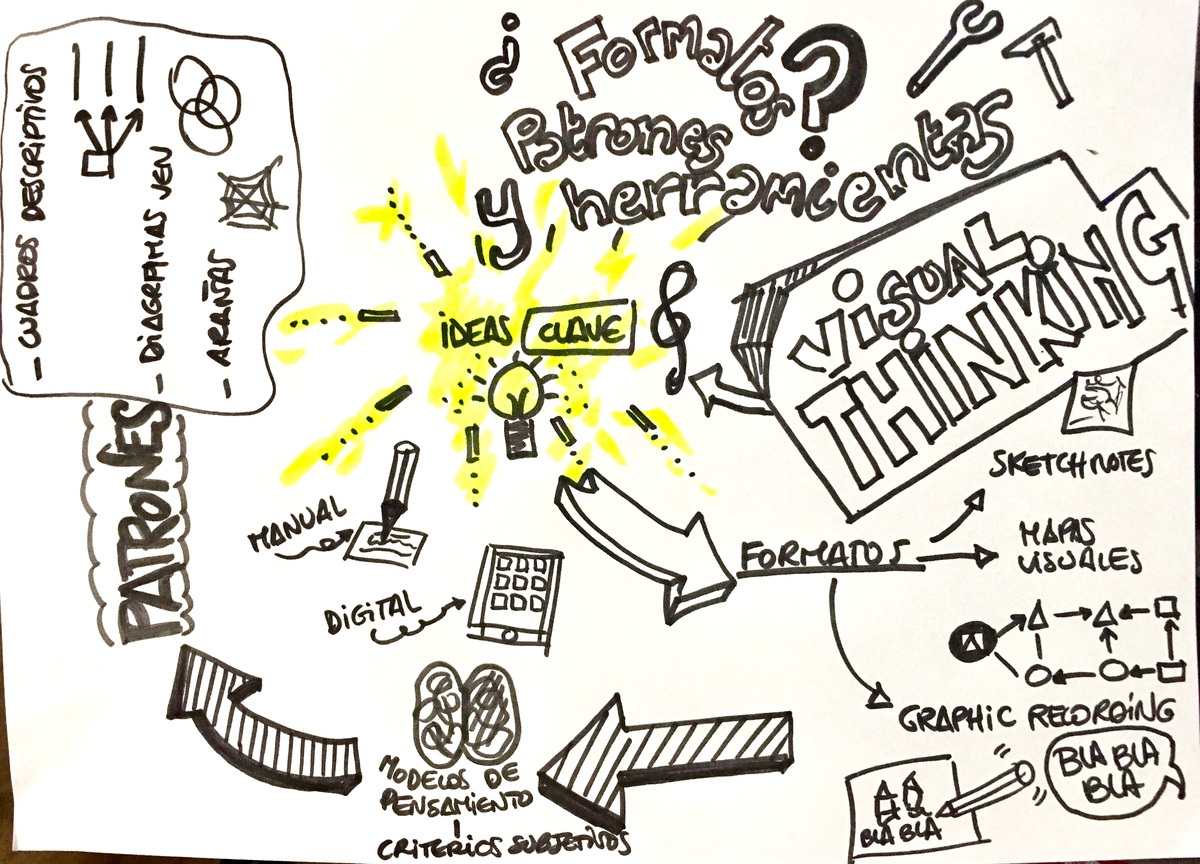 ¿ Formatos
Patrones ?
y herramientas
VISUAL
THINKING
IDEAS CLAVE
MANUAL
DIGITAL
FORMATOS
SKETCHNOTES
MAPAS
VISUALES
GRAPHIC RECORDING
BLA BLA
BLA
BLA BLA
MODELOS DE
PENSAMIENTO
CRITERIOS SUBJETIVOS
PATRONES
- CUADROS DESCRIPTIVOS
- DIAGRAMAS VEN
- ARAÑAS